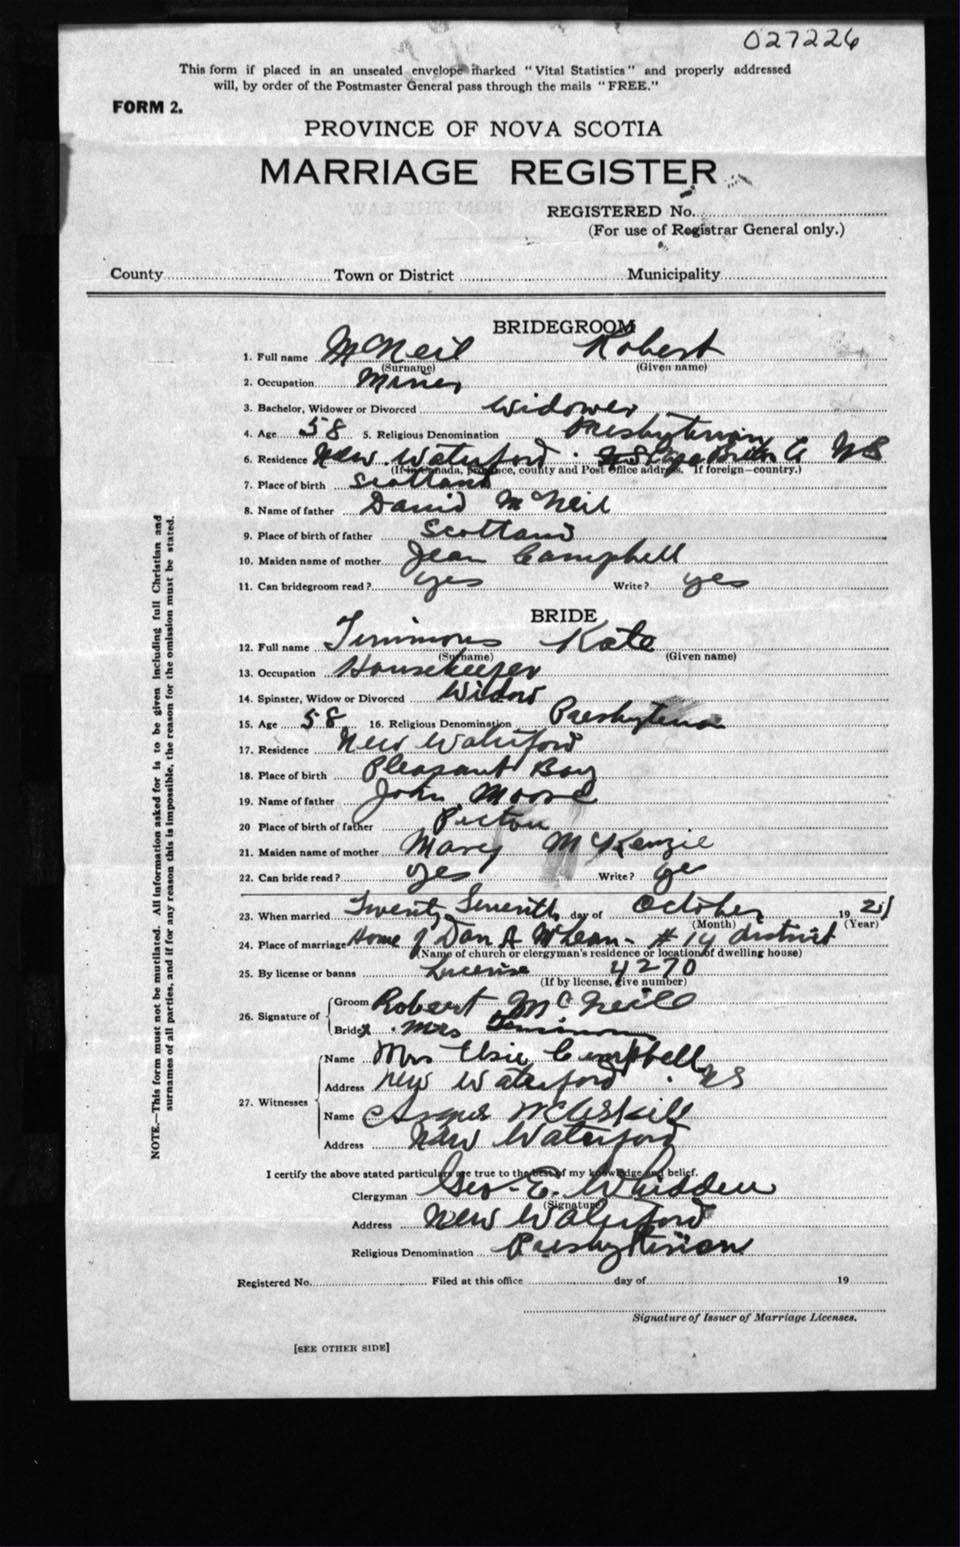 027226
This form if placed in an unsealed envelope marked "Vital Statistics" and properly addressed
will, by order of the Postmaster General pass through the mails "FREE."
FORM 2.
PROVINCE OF NOVA SCOTIA
MARRIAGE REGISTER
REGISTERED No.
(For use of Registrar General only.)
County Town or District Municipality
BRIDEGROOM
1. Full name McNeil Robert
(Surname) (Given name)
2. Occupation Miner
3. Bachelor, Widower or Divorced Widower
4. Age 58 5. Religious Denomination Presbyterian
6. Residence New Waterford Cape Breton Co NS
(If in Canada, province, county and Post Office address. If foreign—country.)
7. Place of birth Scotland
8. Name of father David McNeil
9. Place of birth of father Scotland
10. Maiden name of mother Jean Campbell
11. Can bridegroom read? yes Write? yes
BRIDE
12. Full name Timmons Kate
(Surname) (Given name)
13. Occupation Housekeeper
14. Spinster, Widow or Divorced Widow
15. Age 58 16. Religious Denomination Presbyterian
17. Residence New Waterford
18. Place of birth Pleasant Bay
19. Name of father John Moore
20 Place of birth of father Pictou
21. Maiden name of mother Mary McKenzie
22. Can bride read? yes Write? yes
23. When married Twenty Seventh day of October 1921
(Month) (Year)
24. Place of marriage Home of Dan A McLean - #14 district
(Name of church or clergyman's residence or location of dwelling house)
25. By license or banns License 4270
(If by license, give number)
26. Signature of Groom Robert McNeill
Bride Mrs Timmons
27. Witnesses Name Mrs Elsie Campbell
Address New Waterford. NS
Name Angus McAskill
Address New Waterford
I certify the above stated particulars are true to the best of my knowledge and belief.
Clergyman Geo. E. Whidden
(Signature)
Address New Waterford
Religious Denomination Presbyterian
Registered No. Filed at this office day of 19
Signature of Issuer of Marriage Licenses.
[SEE OTHER SIDE]
NOTE.—This form must not be mutilated. All information asked for is to be given including full Christian and
surnames of all parties, and if for any reason this is impossible, the reason for the omission must be stated.